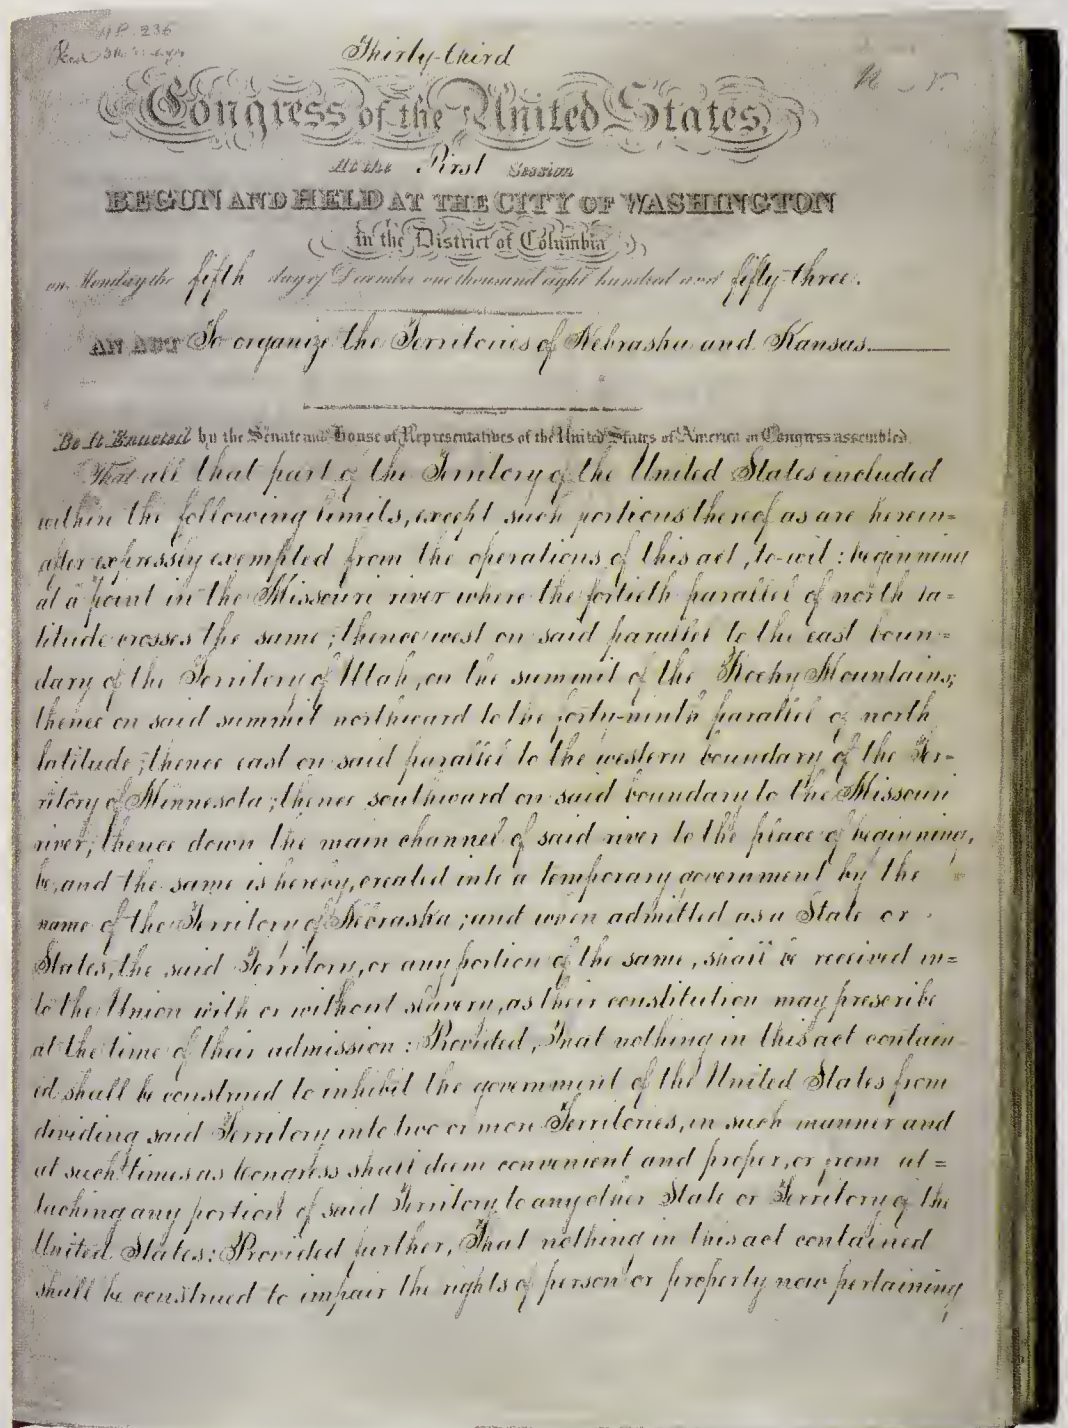 Thirty-third
Congress of the United States,
At the First Session
BEGUN AND HELD AT THE CITY OF WASHINGTON
in the District of Columbia
on Monday the fifth day of December one thousand eight hundred and fifty-three.
AN ACT To organize the Territories of Nebraska and Kansas.
Be It Enacted by the Senate and House of Representatives of the United States of America in Congress assembled,
That all that part of the Territory of the United States included
within the following limits, except such portions thereof as are herein=
after expressly exempted from the operations of this act, to-wit: beginning
at a point in the Missouri river where the fortieth parallel of north la=
titude crosses the same; thence west on said parallel to the east boun=
dary of the Territory of Utah, on the summit of the Rocky Mountains;
thence on said summit northward to the forty-ninth parallel of north
latitude; thence east on said parallel to the western boundary of the Ter-
ritory of Minnesota; thence southward on said boundary to the Missouri
river; thence down the main channel of said river to the place of beginning,
be, and the same is hereby, created into a temporary government by the
name of the Territory of Nebraska; and when admitted as a State or
States, the said Territory, or any portion of the same, shall be received in=
to the Union with or without slavery, as their constitution may prescribe
at the time of their admission: Provided, That nothing in this act contain-
ed shall be construed to inhibit the government of the United States from
dividing said Territory into two or more Territories, in such manner and
at such times as Congress shall deem convenient and proper, or from at=
taching any portion of said Territory to any other State or Territory of the
United States: Provided further, That nothing in this act contained
shall be construed to impair the rights of person or property now pertaining